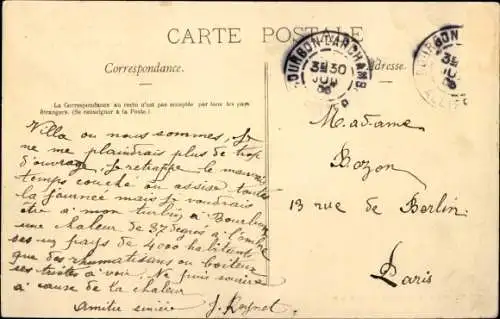 CARTE POSTALE
Correspondance.
Adresse.
La Correspondance au recto n'est pas acceptée par tous les pays
étrangers. (Se renseigner à la Poste.)
BOURBON-L'ARCHAMB
3E 30
JUIL
BOURBON
3E
ALLIER
Villa ou nous sommes. Je
ne me plaindrais plus de trop
d'ouvrage Je retrappe le mauvais
temps couché ou assise toute
la journée mais je voudrais
être à mon turbin à Bourbon
une chaleur de 37 degrés à l'ombre
un pays de 4000 habitants
que des rhumatisans ou boiteux
à voir. Ne puis
à cause de la chaleur
Amitié sincère
Madame
Bozon
13 rue de Berlin
Paris